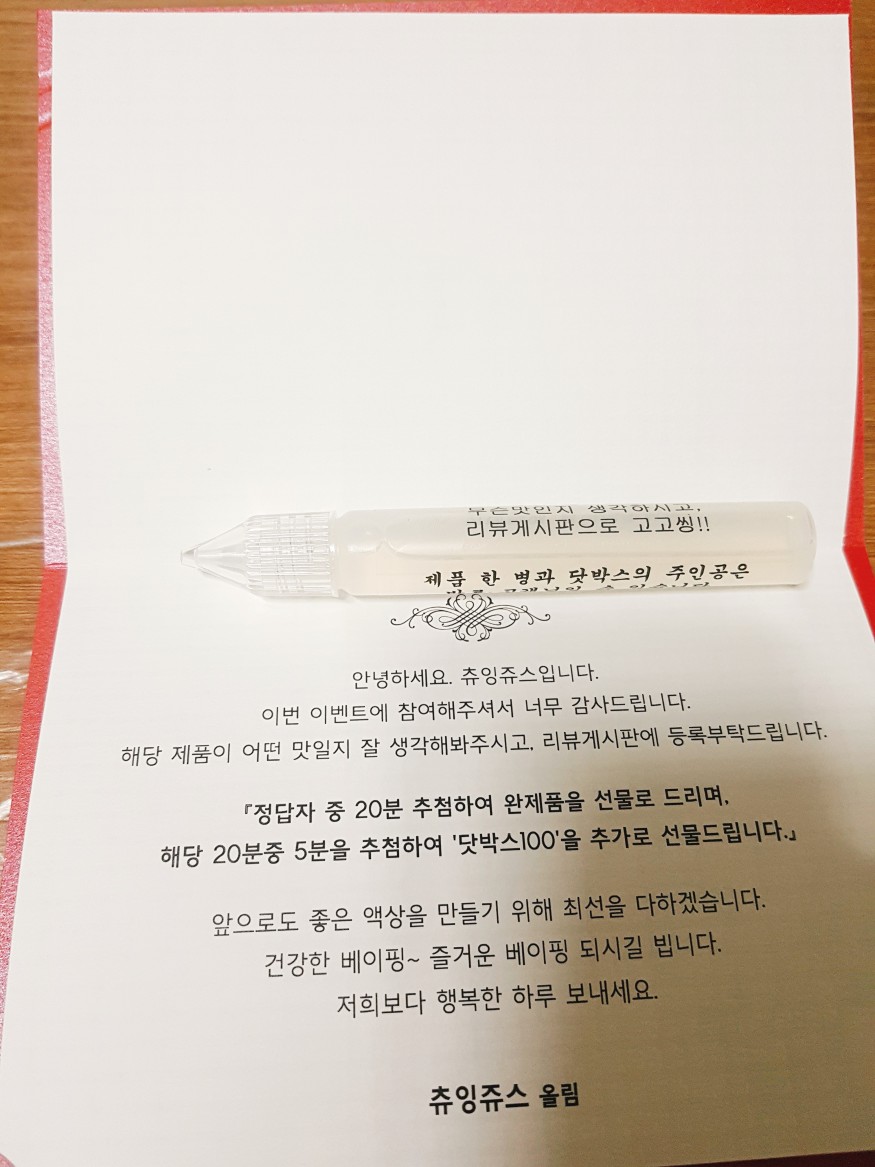 무슨맛인지 생각하시고,
리뷰게시판으로 고고씽!!
제품 한 병과 닷박스의 주인공은
안녕하세요. 츄잉쥬스입니다.
이번 이벤트에 참여해주셔서 너무 감사드립니다.
해당 제품이 어떤 맛일지 잘 생각해봐주시고, 리뷰게시판에 등록부탁드립니다.
『정답자 중 20분 추첨하여 완제품을 선물로 드리며,
해당 20분중 5분을 추첨하여 '닷박스100'을 추가로 선물드립니다.』
앞으로도 좋은 액상을 만들기 위해 최선을 다하겠습니다.
건강한 베이핑~ 즐거운 베이핑 되시길 빕니다.
저희보다 행복한 하루 보내세요.
츄잉쥬스 올림